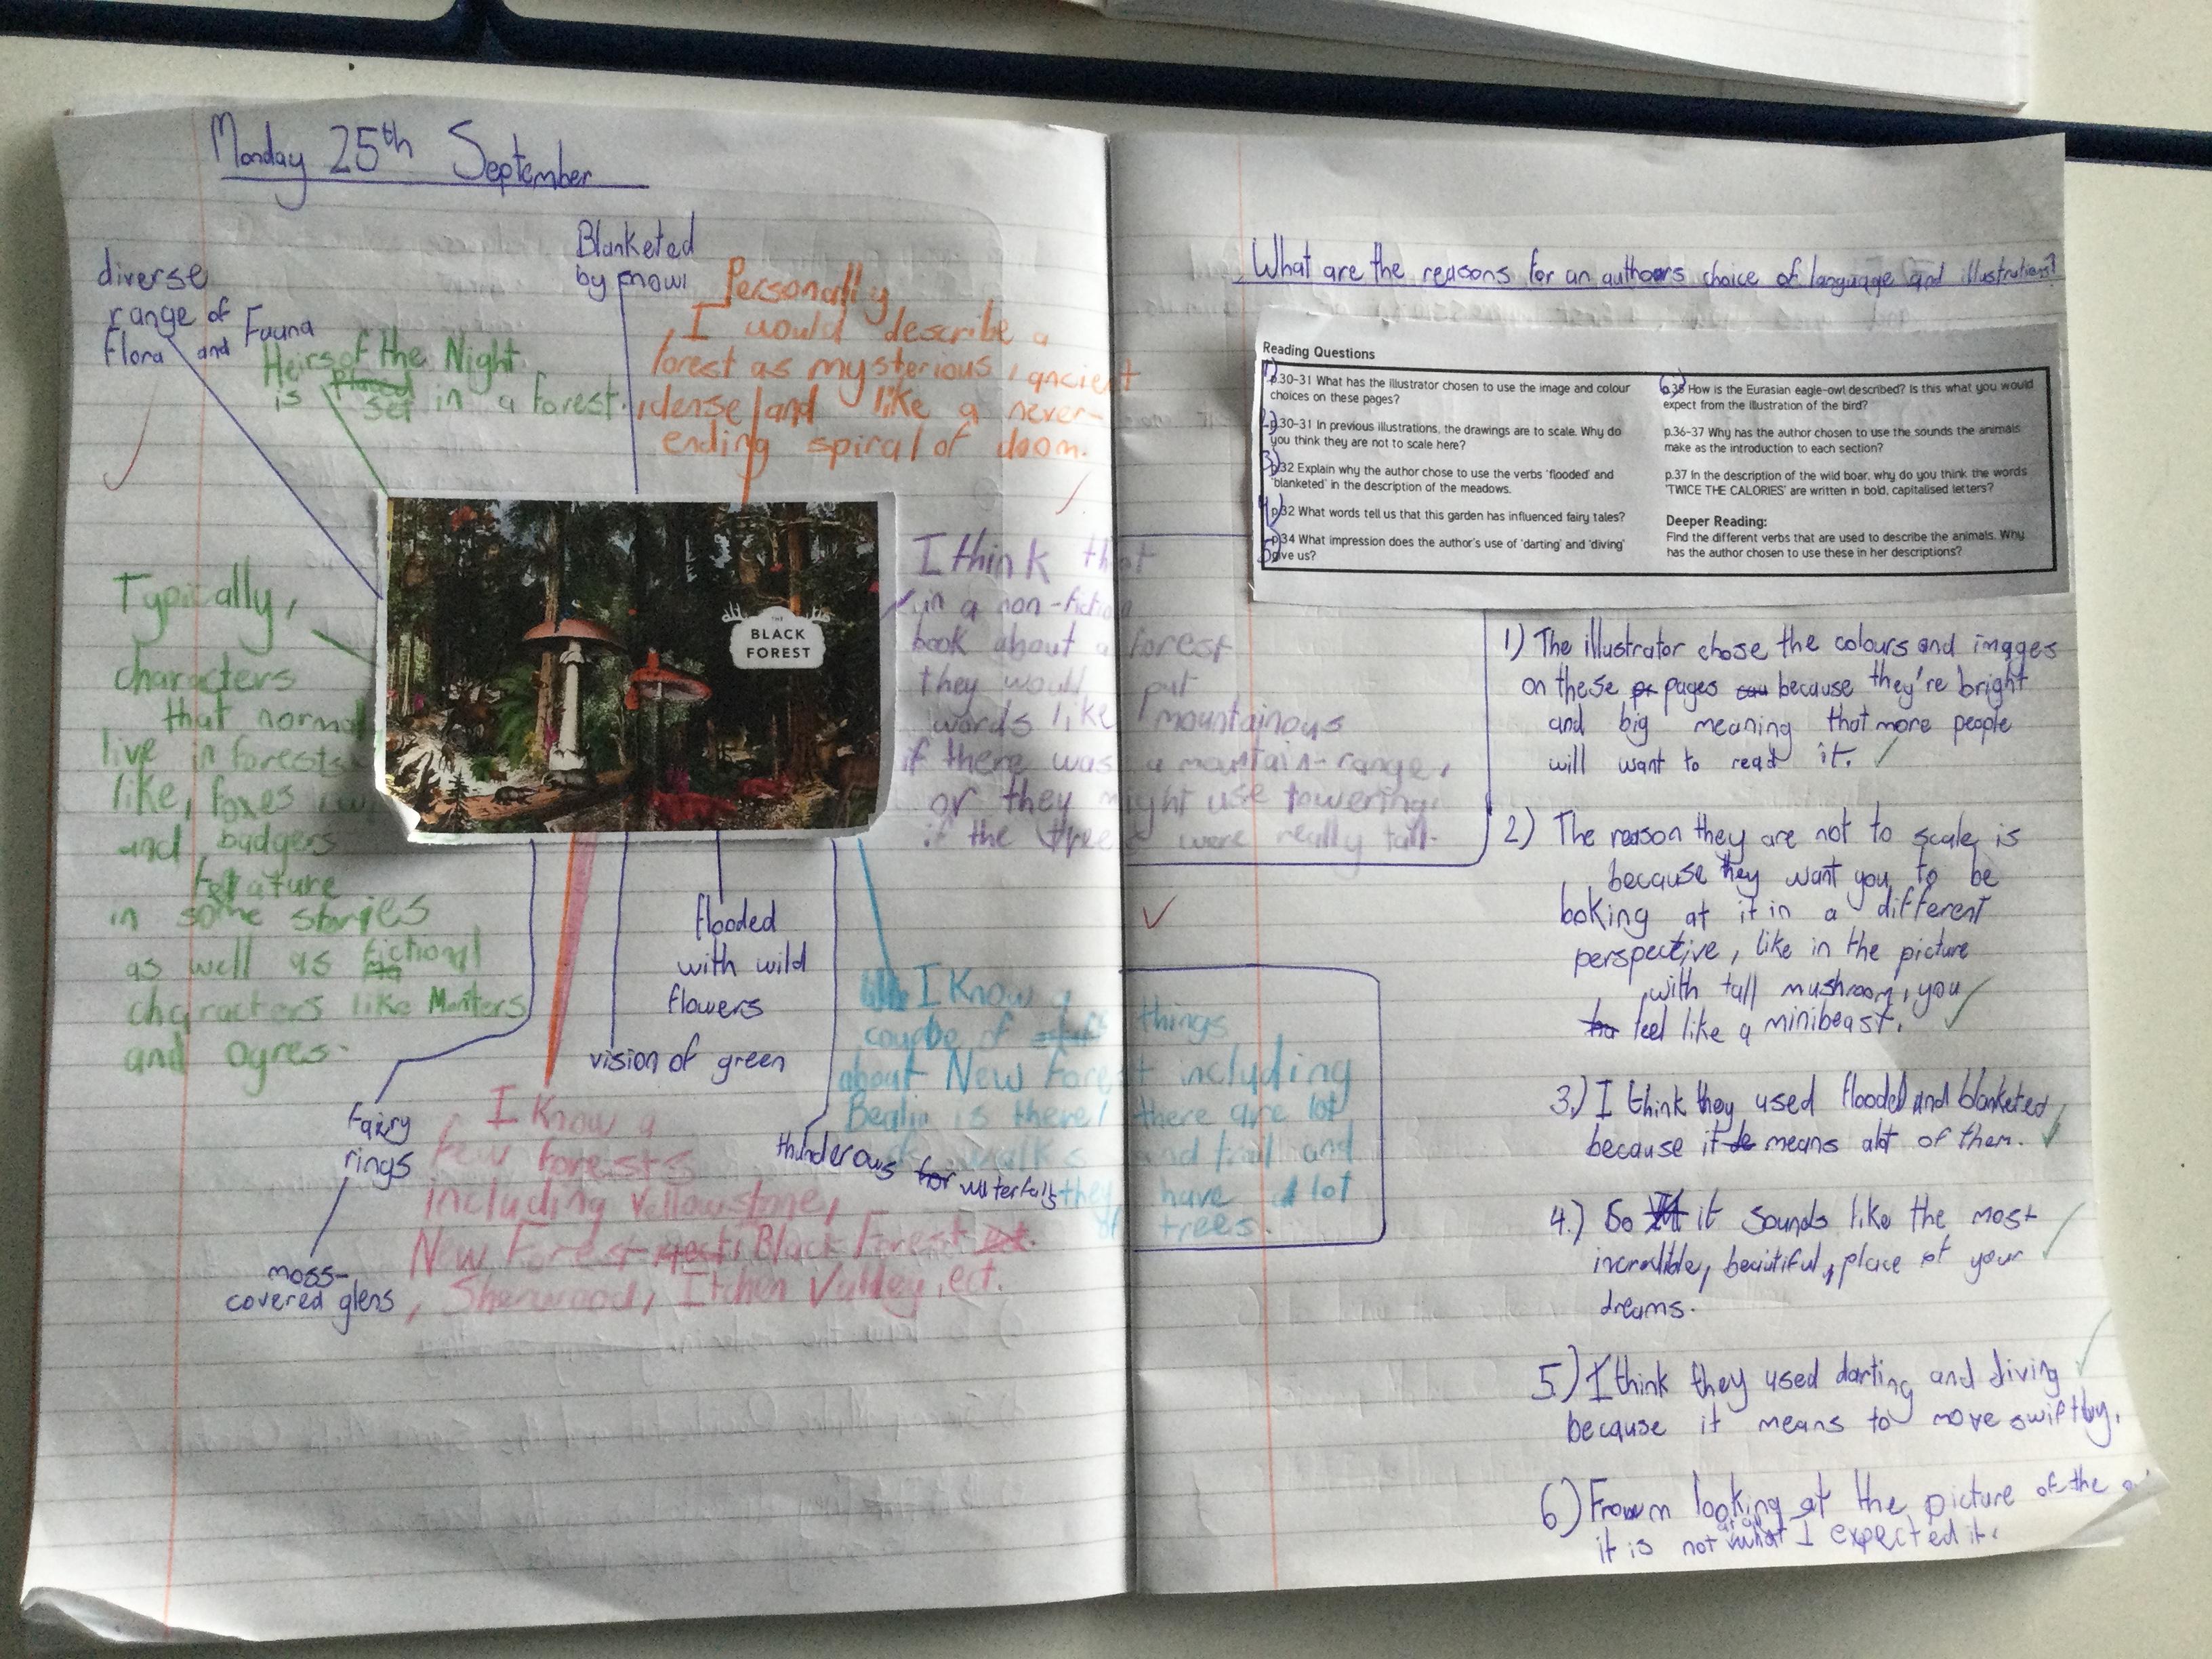 Monday 25th September
diverse
range of
flora and Fauna
Blanketed
by snow
Heirs of the Night
is placed set in a forest.
Personally,
I would describe a
forest as mysterious, ancient
, dense, and like a never-
ending spiral of doom.
THE
BLACK
FOREST
Typically,
characters
that normal
live in forests
like, foxes
and badgers
feature
in some stories
as well as fictional
characters like Monters
and Ogres.
I think that
in a non-fiction
book about a forest
they would put
words like mountainous
if there was a mountain-range,
or they might use towering
if the trees were really tall.
flooded
with wild
flowers
vision of green
Fairy
rings
moss-
covered glens
thunderous for waterfalls
I know a
few forests
including Yellowstone,
New Forest Black Forest ect.
, Sherwood, Itchen Valley, ect.
I Know a
couple of stuff things
about New Forest including
is there, there are lot
walks and trail and
they have a lot
of trees.
What are the reasons for an authors choice of language and illustrations?
Reading Questions
1) p.30-31 What has the illustrator chosen to use the image and colour
choices on these pages?
2) p.30-31 In previous illustrations, the drawings are to scale. Why do
you think they are not to scale here?
3) p.32 Explain why the author chose to use the verbs 'flooded' and
'blanketed' in the description of the meadows.
4) p.32 What words tell us that this garden has influenced fairy tales?
5) p.34 What impression does the author's use of 'darting' and 'diving'
give us?
6) How is the Eurasian eagle-owl described? Is this what you would
expect from the illustration of the bird?
p.36-37 Why has the author chosen to use the sounds the animals
make as the introduction to each section?
p.37 In the description of the wild boar, why do you think the words
'TWICE THE CALORIES' are written in bold, capitalised letters?
Deeper Reading:
Find the different verbs that are used to describe the animals. Why
has the author chosen to use these in her descriptions?
1) The illustrator chose the colours and images
on these pages because they're bright
and big meaning that more people
will want to read it.
2) The reason they are not to scale is
because they want you to be
looking at it in a different
perspective, like in the picture
with tall mushroom, you
feel like a minibeast.
3.) I think they used flooded and blanketed
because it means alot of them.
4.) So it sounds like the most
incredible, beautiful, place of your
dreams.
5.) I think they used darting and diving
because it means to move swiftly.
6) From looking at the picture of the
it is not what I expected it.